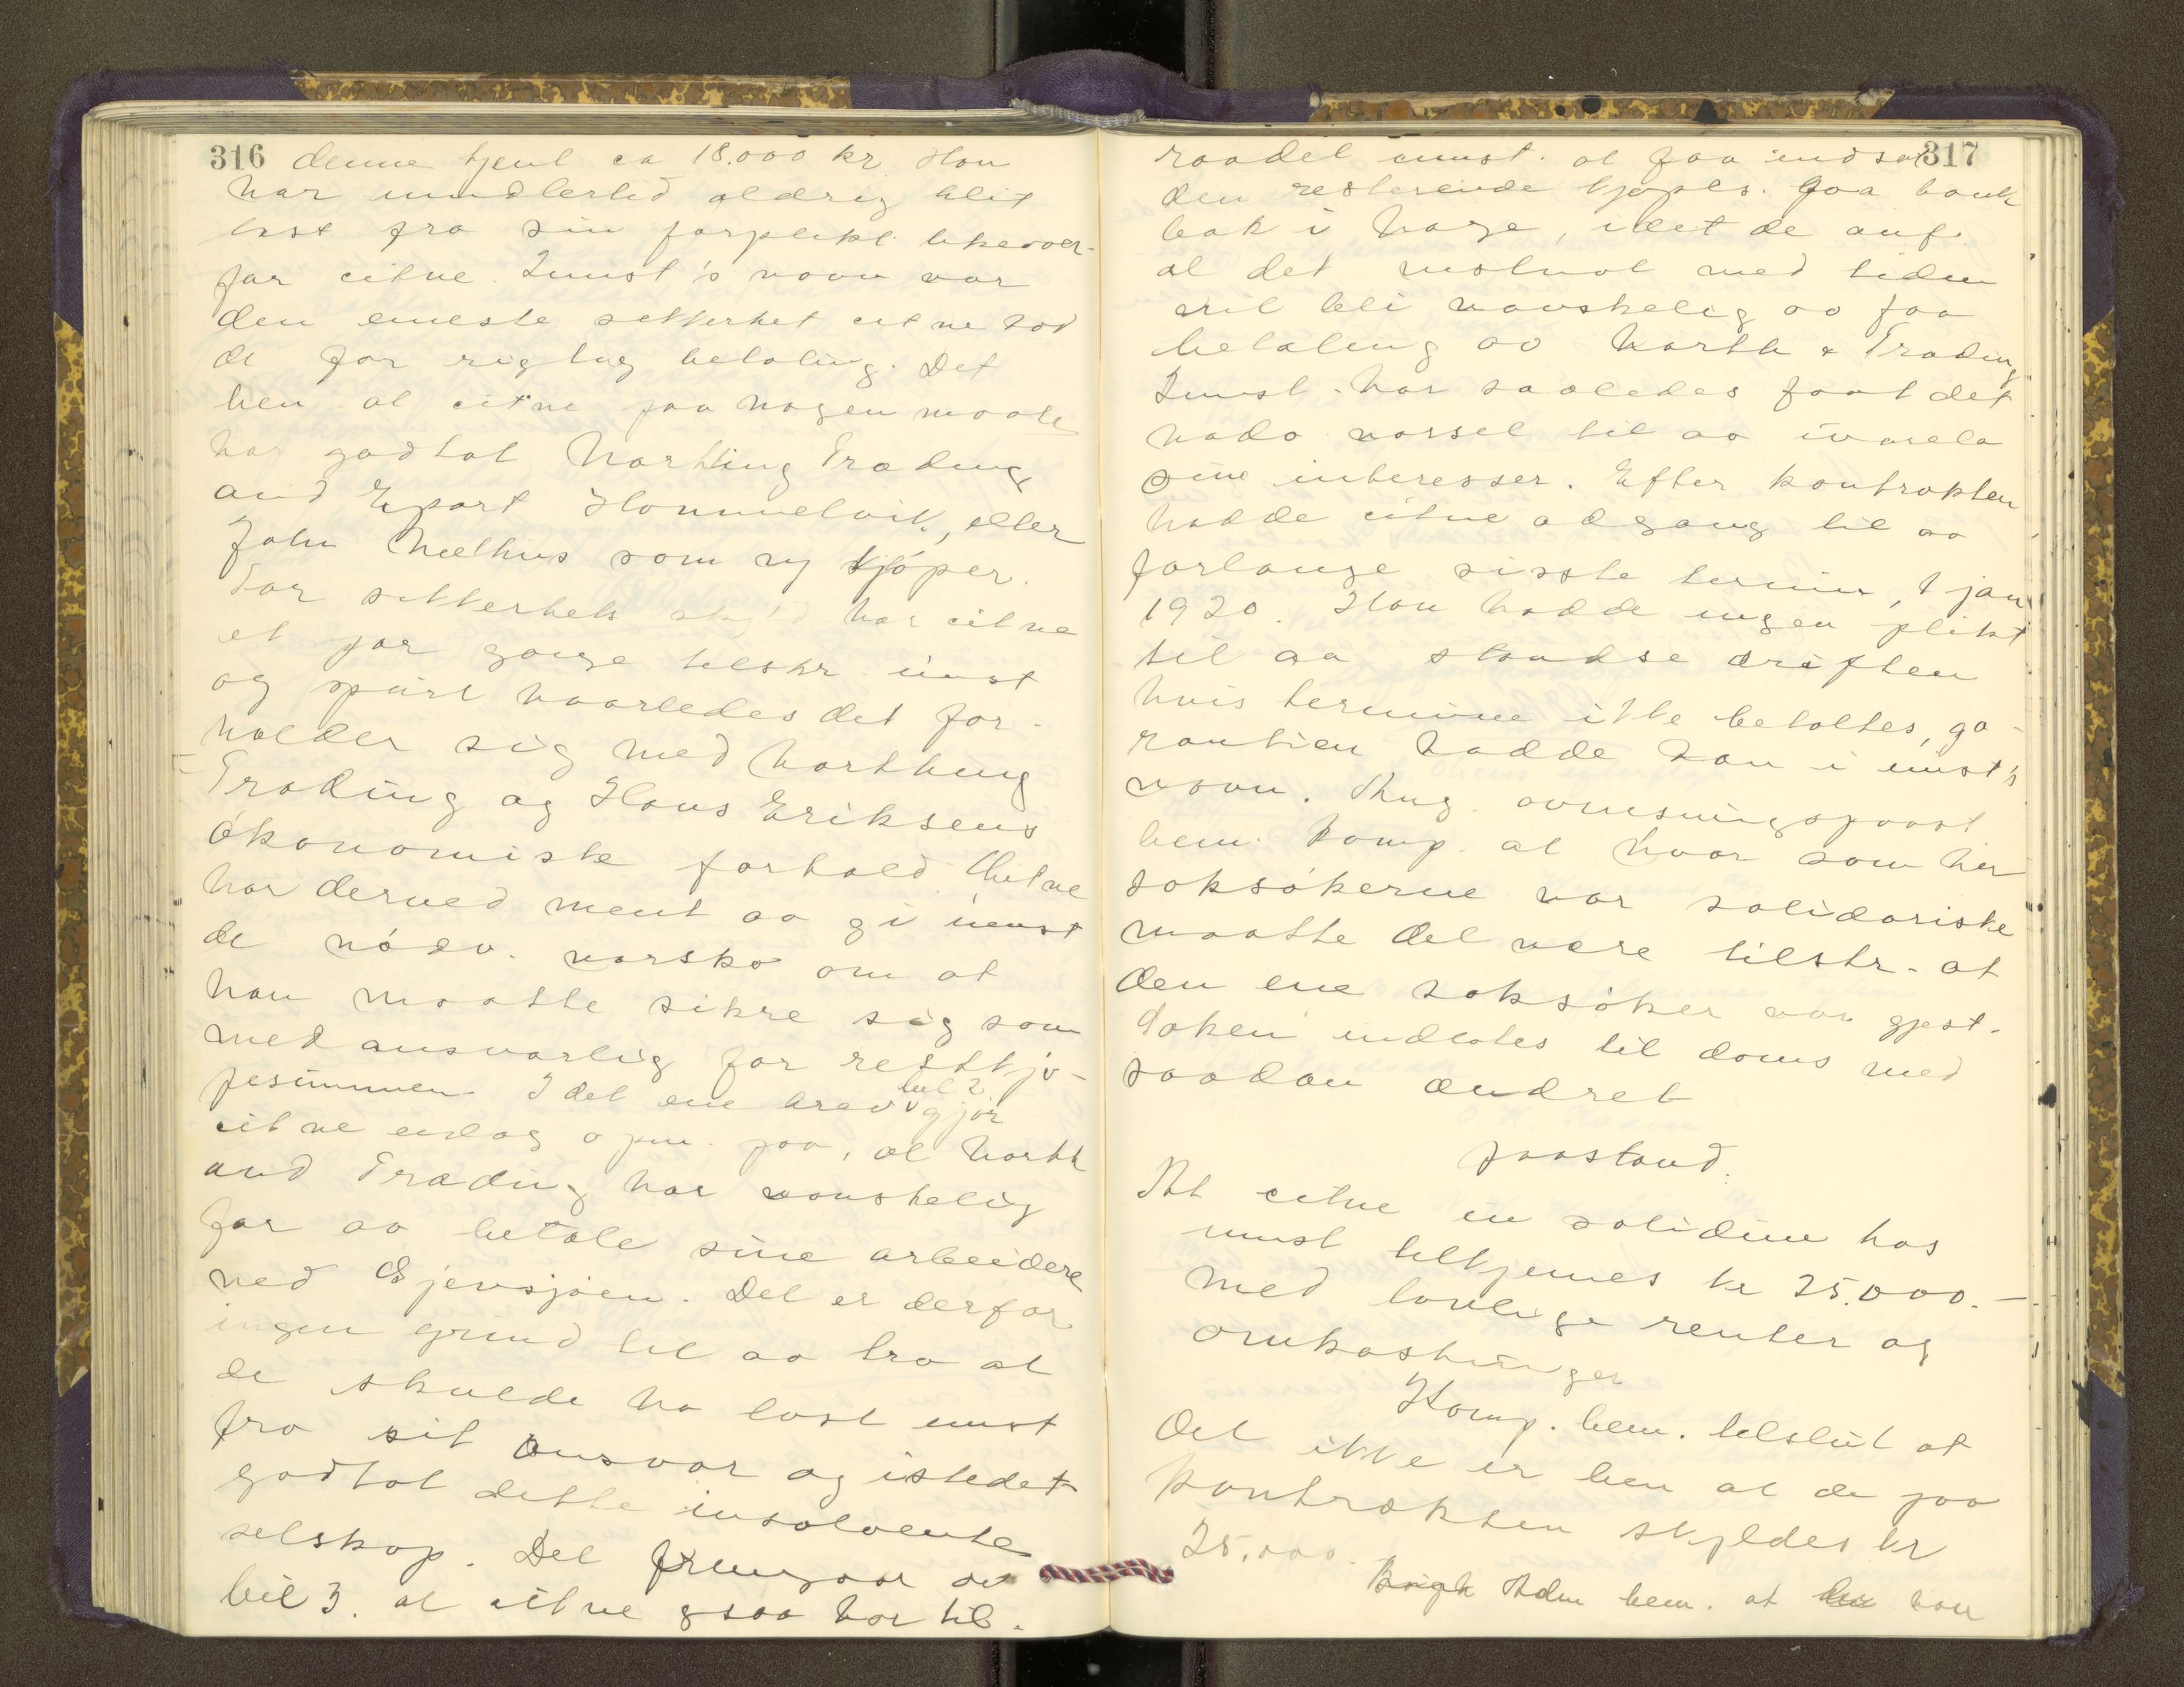 316 denne tjent ca 18.000 kr Han
har imidlertid aldrig blit
løst fra sin forplikt. likeover-
for citne. Innst's navn var
den eneste sikkerhet citne hod
de for rigtig betaling. Det
ben. at citne paa nogen maate
har godtat Northing Trading
and Export Hommelvik, eller
John Melhus som ny kjöper.
For sikkerhets skyld har citne
et par gange tilskr. innst
og spurt hvorledes det for-
holder sig med Northing
Trading og Hans Eriksens
ökonomiske forhold. Citne
har derved ment aa gi innst
de nödv. varsko om at
han maatte sikre sig som
medansvarlig for restkjö-
pesummen. I det ene brev bil 2 gjör
citne endog opm. paa, at North
and Trading har vanskelig
for aa betale sine arbeidere
ved Gjevsjöen. Det er derfor
ingen grund til aa tro at
de skulde ha löst innst
fra sit ansvar og istedet
godtat dette insolvente
selskap. Det fremgaar av
bil 3. at citne ogsaa har til-
317
raadet innst. at faa indsat
den resterende kjöpes. paa bank
bak i Norge, idet de anf.
at det mulnat med tiden
vil bli vanskelig aa faa
betaling av North & Trading
Innst. har saaledes faat det
nödv. varsel til aa ivareta
sine interesser. Efter kontrakten
hadde citne adgang til aa
forlange sisste termin, 1 jan
1920. Han hadde ingen plikt
til aa standse driften
hvis terminene ikke betaltes, ga-
rantien hadde han i innst's
navn. Ang. avvisningspaast
bem. komp. at hvor som her
saksökerne var solidariske
maatte det være tilstr. at
den ene saksöker var gjest.
Saken indlotes til doms med
saadan ændret
paastand:
At citne in solidum hos
innst tilkjennes kr 25.000.-
med lovlige renter og
omkostninger
Komp. bem. tilslut at
det ikke er ben at de paa
kontrakten skyldes kr
25.000.
Adm bem. at han